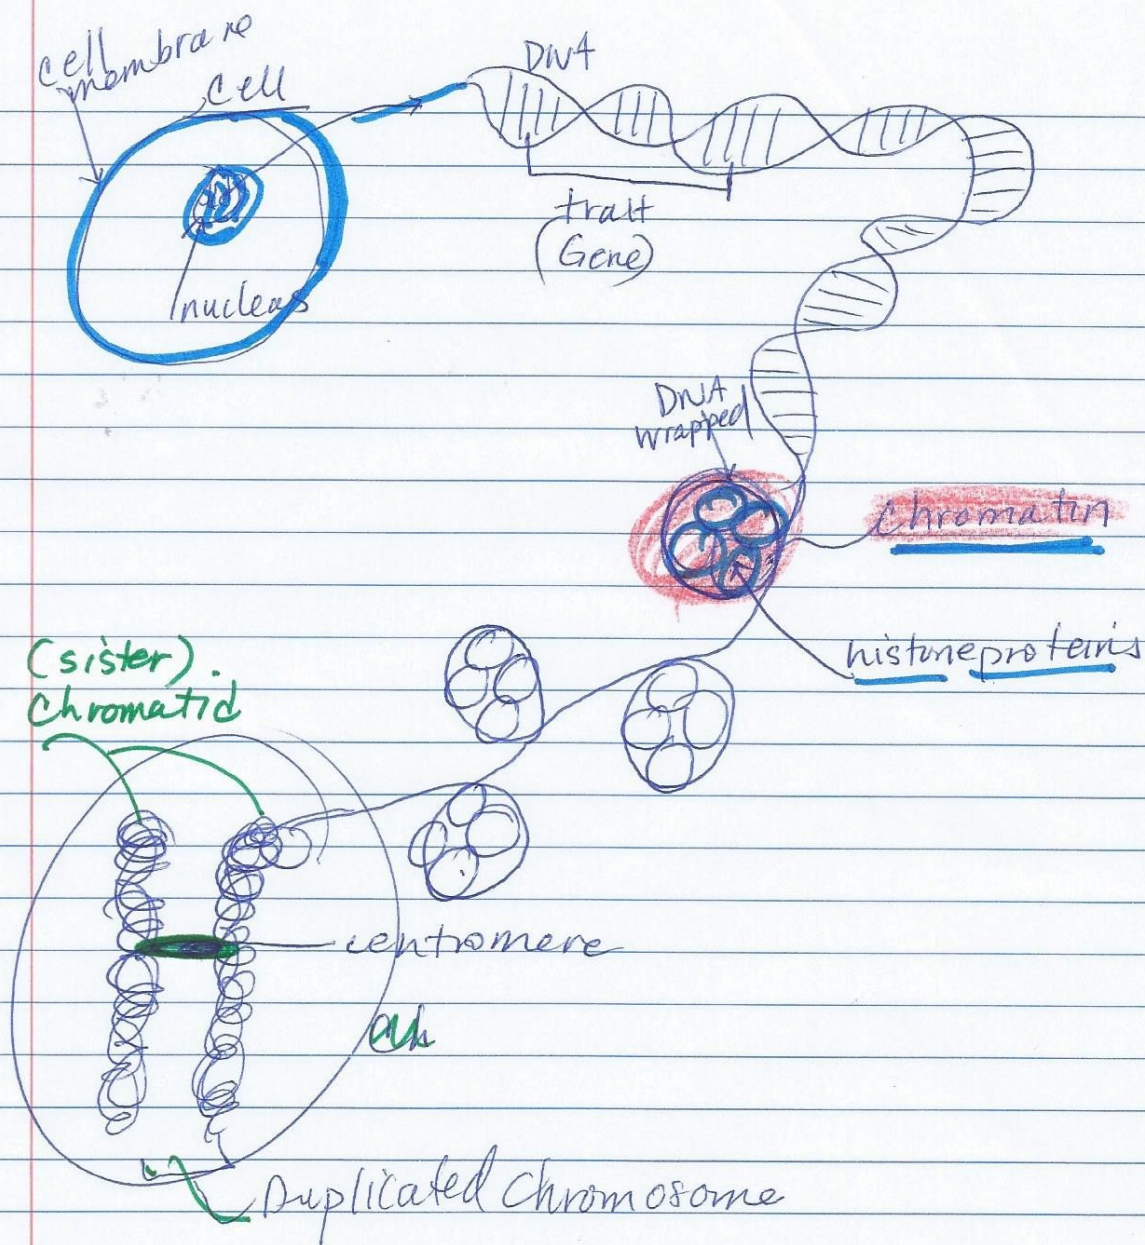 cell
membrane
cell
DNA
trait
(Gene)
nucleus
DNA
wrapped
chromatin
histone proteins
(sister).
Chromatid
centromere
Duplicated Chromosome